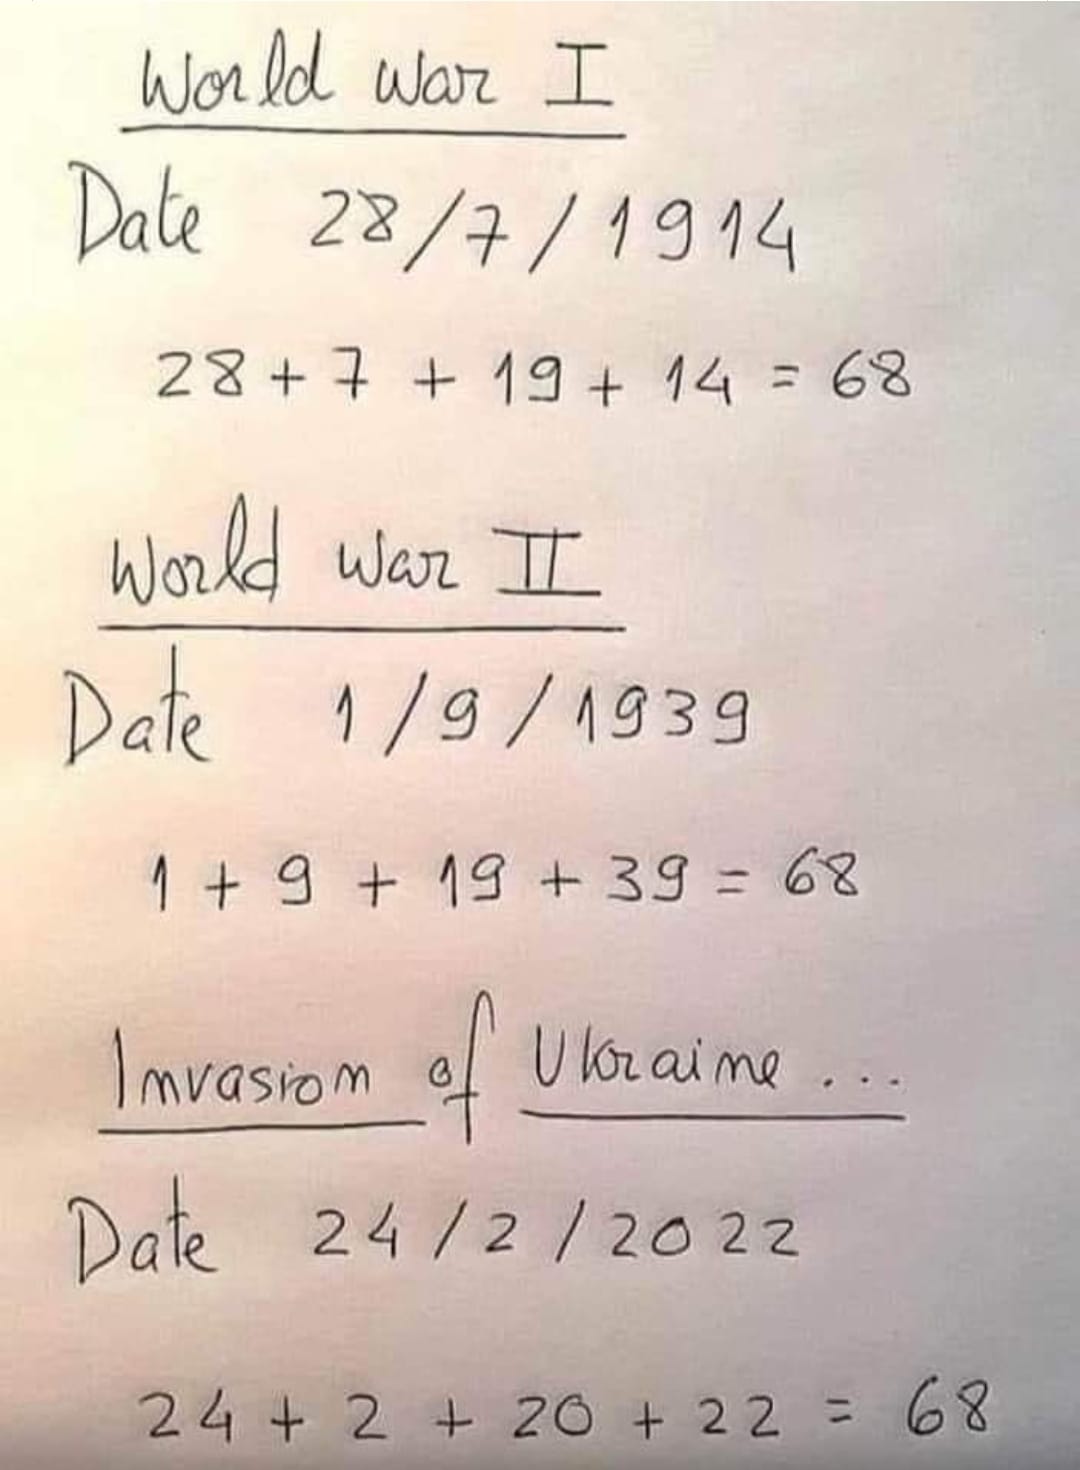 World War I
Date 28/7/1914
28 + 7 + 19 + 14 = 68
World War II
Date 1/9/1939
1 + 9 + 19 + 39 = 68
Invasion of Ukraine ...
Date 24/2/2022
24 + 2 + 20 + 22 = 68